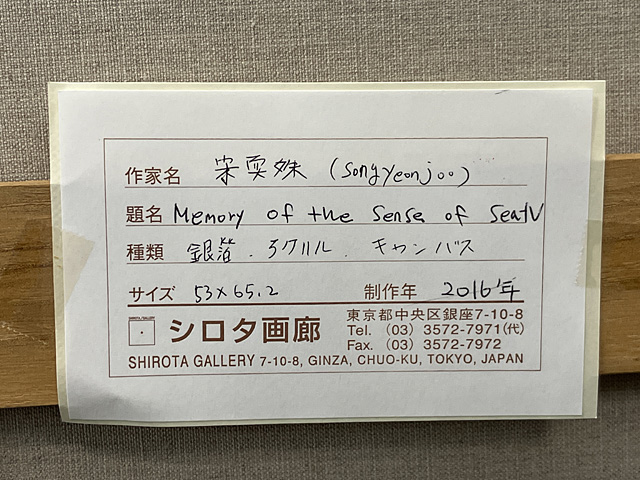 作家名 宋耎姝 (songyeonjoo)
題名 Memory of the Sense of Seat Ⅳ
種類 銀箔. アクリル. キャンバス
サイズ 53×65.2 制作年 2016年
シロタ画廊
東京都中央区銀座7-10-8
Tel. (03) 3572-7971(代)
Fax. (03) 3572-7972
SHIROTA GALLERY 7-10-8, GINZA, CHUO-KU, TOKYO, JAPAN